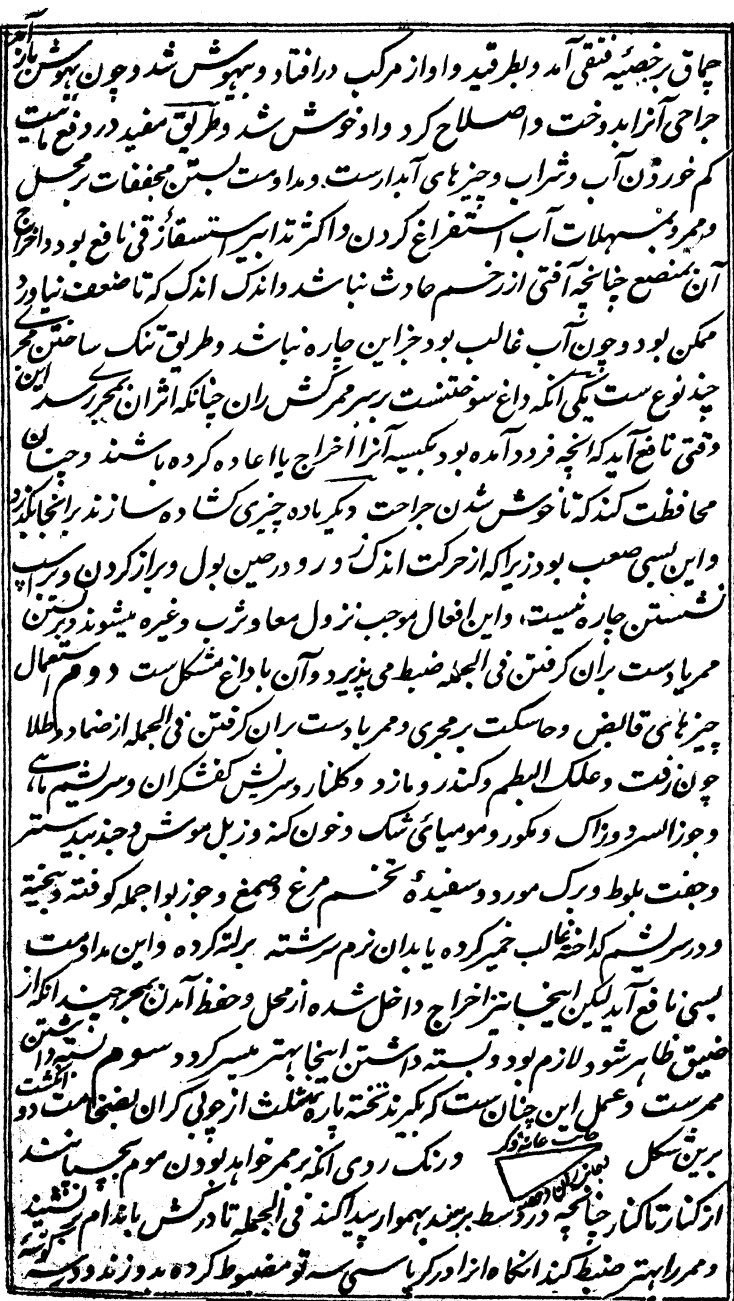 چماق بر خصیئه فتقی آمد و بطرقید و او از مرکب درافتاد و بیهوش شد و چون بهوش باز آمد
جراحی آنرا بدوخت و اصلاح کرد و او خوش شد و طریق مفید در دفع مائیت
کم خوردن آب و شراب و چیزهای آبدارست و مداومت بستن مجففات بر محل
و ممر و بمسهلات آب استفراغ کردن و اکثر تدابیر استسقاء زقی نافع بود و اخراج
آن بمبضع چنانچه آفتی از زخم حادث نباشد و اندک اندک که تا ضعف نیاورد
ممکن بود و چون آب غالب بود جز این چاره نباشد و طریق تنک ساختن مجری
چند نوع ست یکی آنکه داغ سوختنست بر سر ممر کش ران چنانکه اثر آن بمجری رسد این
وقتی نافع آید که آنچه فرود آمده بود بکیسه آنرا اخراج یا اعاده کرده باشند و چنان
محافظت کنند که تا خوش شدن جراحت دیگر باده چیزی کشاده سازند بر آنجا نگذرد
و این بسی صعب بود زیرا که از حرکت اندک و در حین بول و براز کردن و بر اسپ
نشستن چاره نیست، و این افعال موجب نزول معا و ثرب و غیره میشوند و بر بستن
ممر یا دست بران گرفتن فی الجمله ضبط می پذیرد و آن با داغ مشکل ست دوم استعمال
چیزهای قابض و حاسکت بر مجری و ممر یا دست بران گرفتن فی الجمله از ضماد و طلا
چون زفت و علک البطم و کندر و مازو و کلنار و سریش کفشگران و سریشم ماهی
و جوز السرو و زاک و مکور و مومیائی شک و خون کنه و زبل موش و جندبیدستر
و جفت بلوط و برک مورد و سفیدۀ تخم مرغ و صمغ و جوزبوا جمله کوفته و بیخته
و در سریشم گداخته غالب خمیر کرده یا بدان نرم سرشته بر لته کرده و این مداومت
بسی نافع آید لیکن اینجا نیز اخراج داخل شده از محل و حفظ آمدن بمجری چندانکه از
ضیق ظاهر شود لازم بود و بسته داشتن اینجا بهتر میسر گردد سوم بسته داشتن
ممرست و عمل این چنان ست که بگیرند تخته پارۀ مثلث از چوبی گران بضخامت دو انگشت
برین شکل جانب عانه و ذکر بجانب ران و خصیه و رنک روی آنکه بر ممر خواهد بودن موم بچسپانند
از کنار تا کنار چنانچه در وسط بر بلند بهموار پیدا کند فی الجمله تا در کش باندام تر نشیند
و ممر را بهتر ضبط کند آنگاه آنرا در کرباسی سه تو مضبوط کرده بدوزند و در سه گوشه